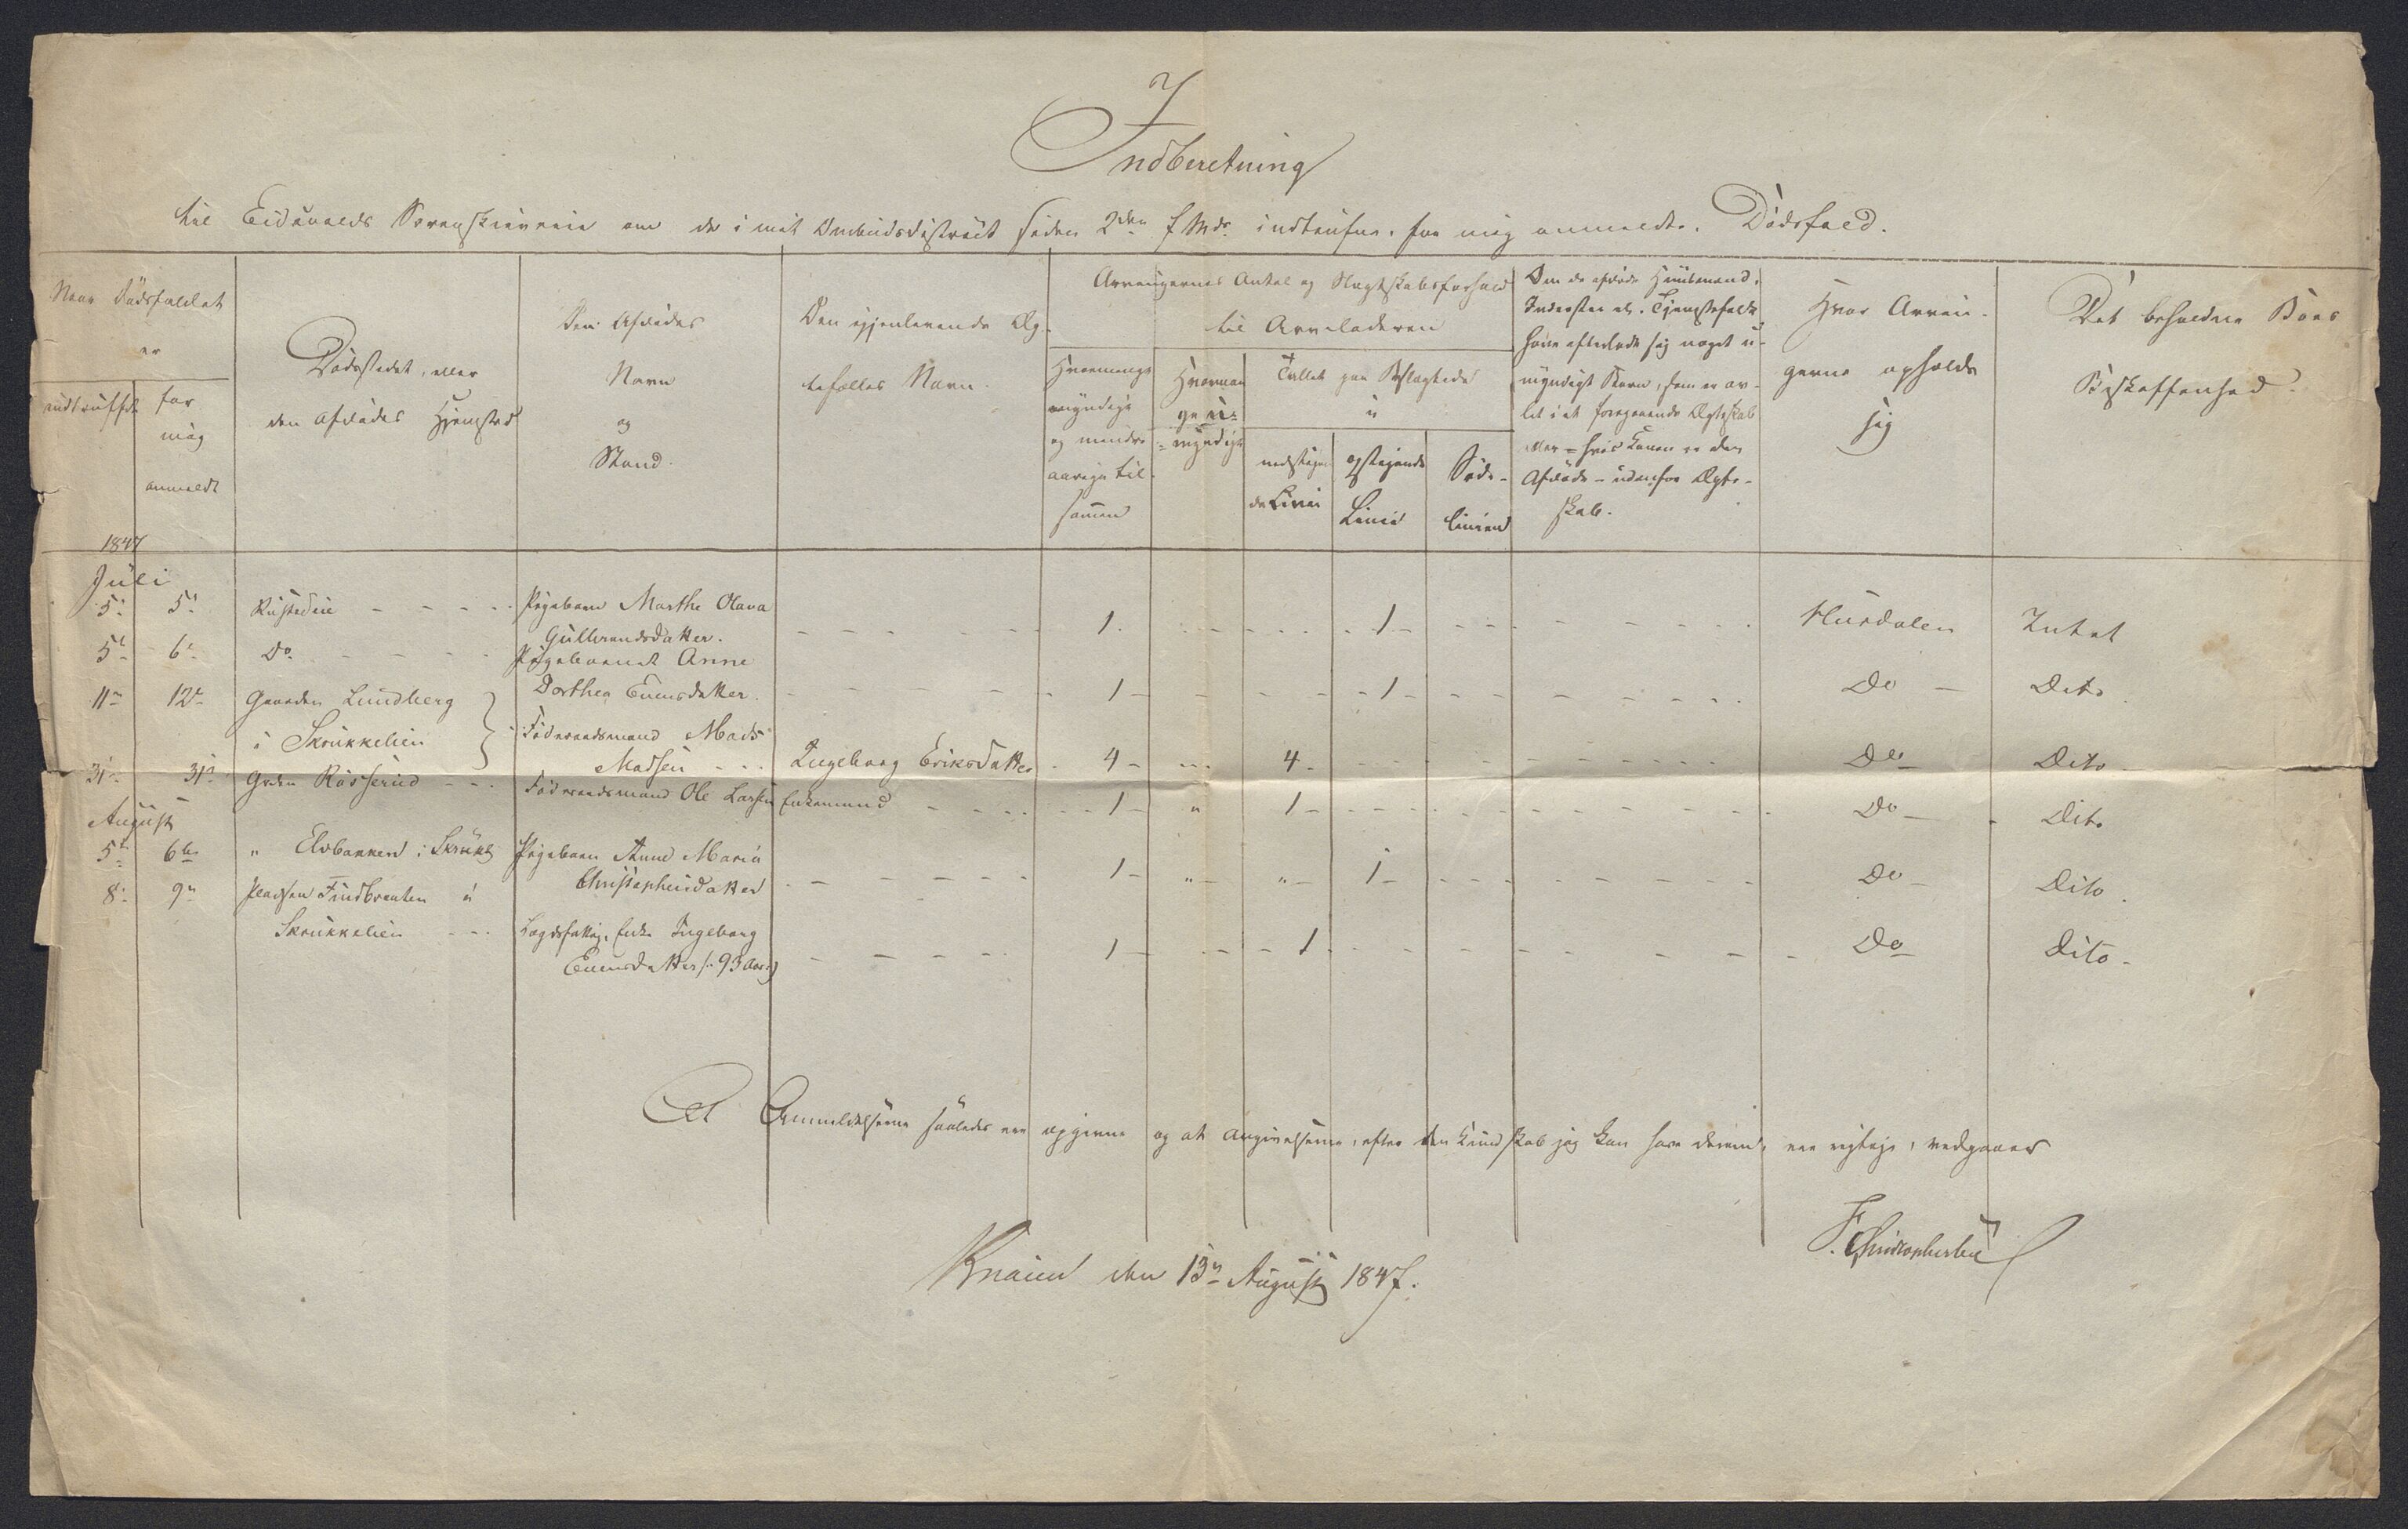 Indberetning
til Eidsvolds Sorenskriverie om de i mit Ombudsdistrict siden 2den f Mdr. indtrufne, for mig anmeldte, Dødsfald.
Naar Dødsfaldet
er
indtruffet
for
mig
anmeldt
Dødsstedet, eller
den Afdødes Hjemsted
Den Afdødes
Navn
og
Stand.
Den gjenlevende Æg-
tefælles Navn.
Arvingernes Antal og Slægtskabsforhold
til Arveladeren
Hvormange
myndige
og mindre
aarige til
sammen
Hvorman
ge u-
myndige
Tallet paa Beslægtede
i
nedstigen
de Linie
opstigende
Linie
Side-
linien
Om de afdøde Huusmænd,
Inderster el. Tjenestefolk
have efterladt sig noget u-
myndigt Barn, som er av-
let i et foregaaende Ægteskab
eller - hvis Konen er den
Afdøde - udenfor Ægte-
skab.
Hvor Arvin-
gerne opholde
sig
Det beholdne Boes
Beskaffenhed.
1847
Juli
5. 5. Rustedeie - - - - Pigebarn Marthe Olava
Gulbrandsdatter. - - - 1. - - - 1 - - - Hurdalen Intet
5t 6t Do. - - - Pigebarnet Anne
Dorthea Evensdatter. - - - 1 - - - 1 - - - Do - Dito
11te 12te Gaarden Lundberg
i Skrukkelien } Föderaadsmand Mads
Madsen - - Ingeborg Eriksdatter - 4 - - 4 - - - Do - Dito
31te 31te Grden Rösserud - - Föderaadsmand Ole Larsen Enkemand - - - 1 - " 1 - - - Do - Dito
August
5t 6te " Elvbakken i Skrukl Pigebarn Anne Maria
Christophersdatter - - - 1 - " - " - 1 - - - Do - Dito
8. 9n Pladsen Findbraaten i
Skrukkelien - - Lægdsfattig, Enke Ingeborg
Evensdatter /: 93 Aar :/ - - - 1 - - - 1 - - - Do - Dito -
At Anmeldelserne saaledes ere opgivne og at Angivelserne, efter den Kundskab jeg kan have derom, ere rigtige, vedgaaes
Knaien den 13de August 1847.
F. Christophersen